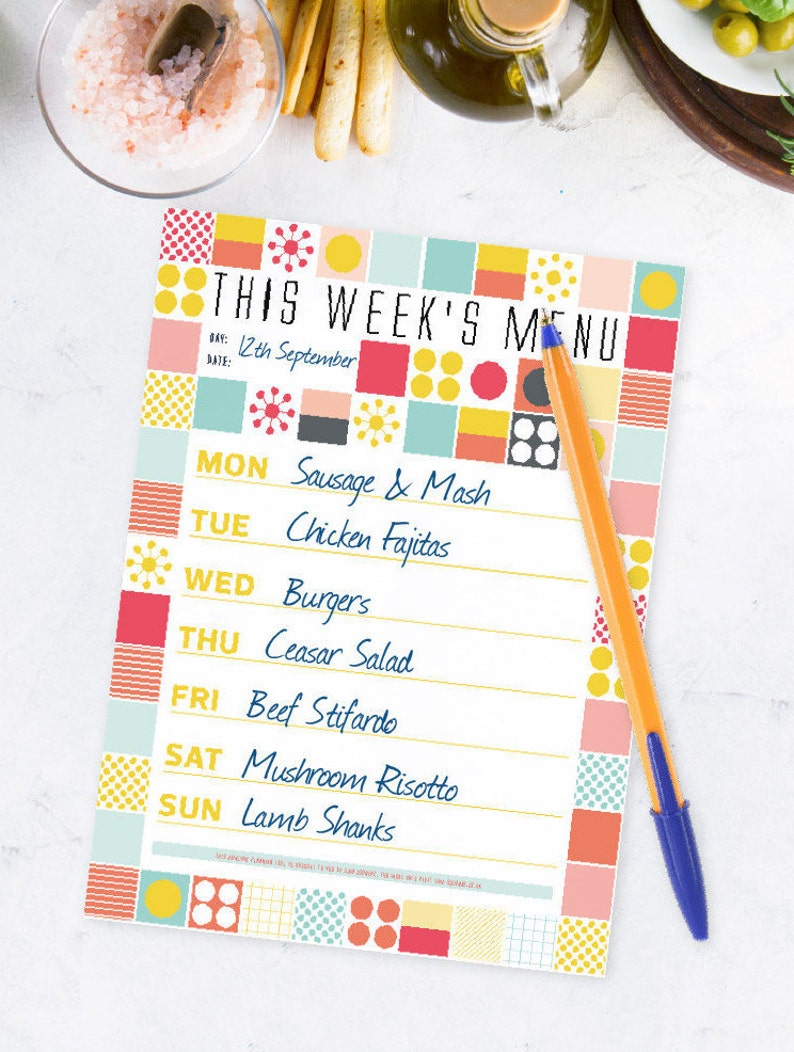 THIS WEEK'S MENU
DAY: 12th September
DATE:
MON Sausage & Mash
TUE Chicken Fajitas
WED Burgers
THU Ceasar Salad
FRI Beef Stifardo
SAT Mushroom Risotto
SUN Lamb Shanks